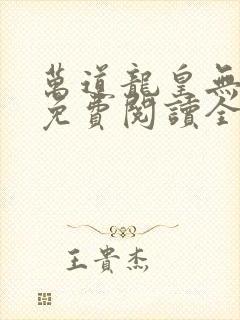 萬道龍皇無
免費閱讀全
王貴杰